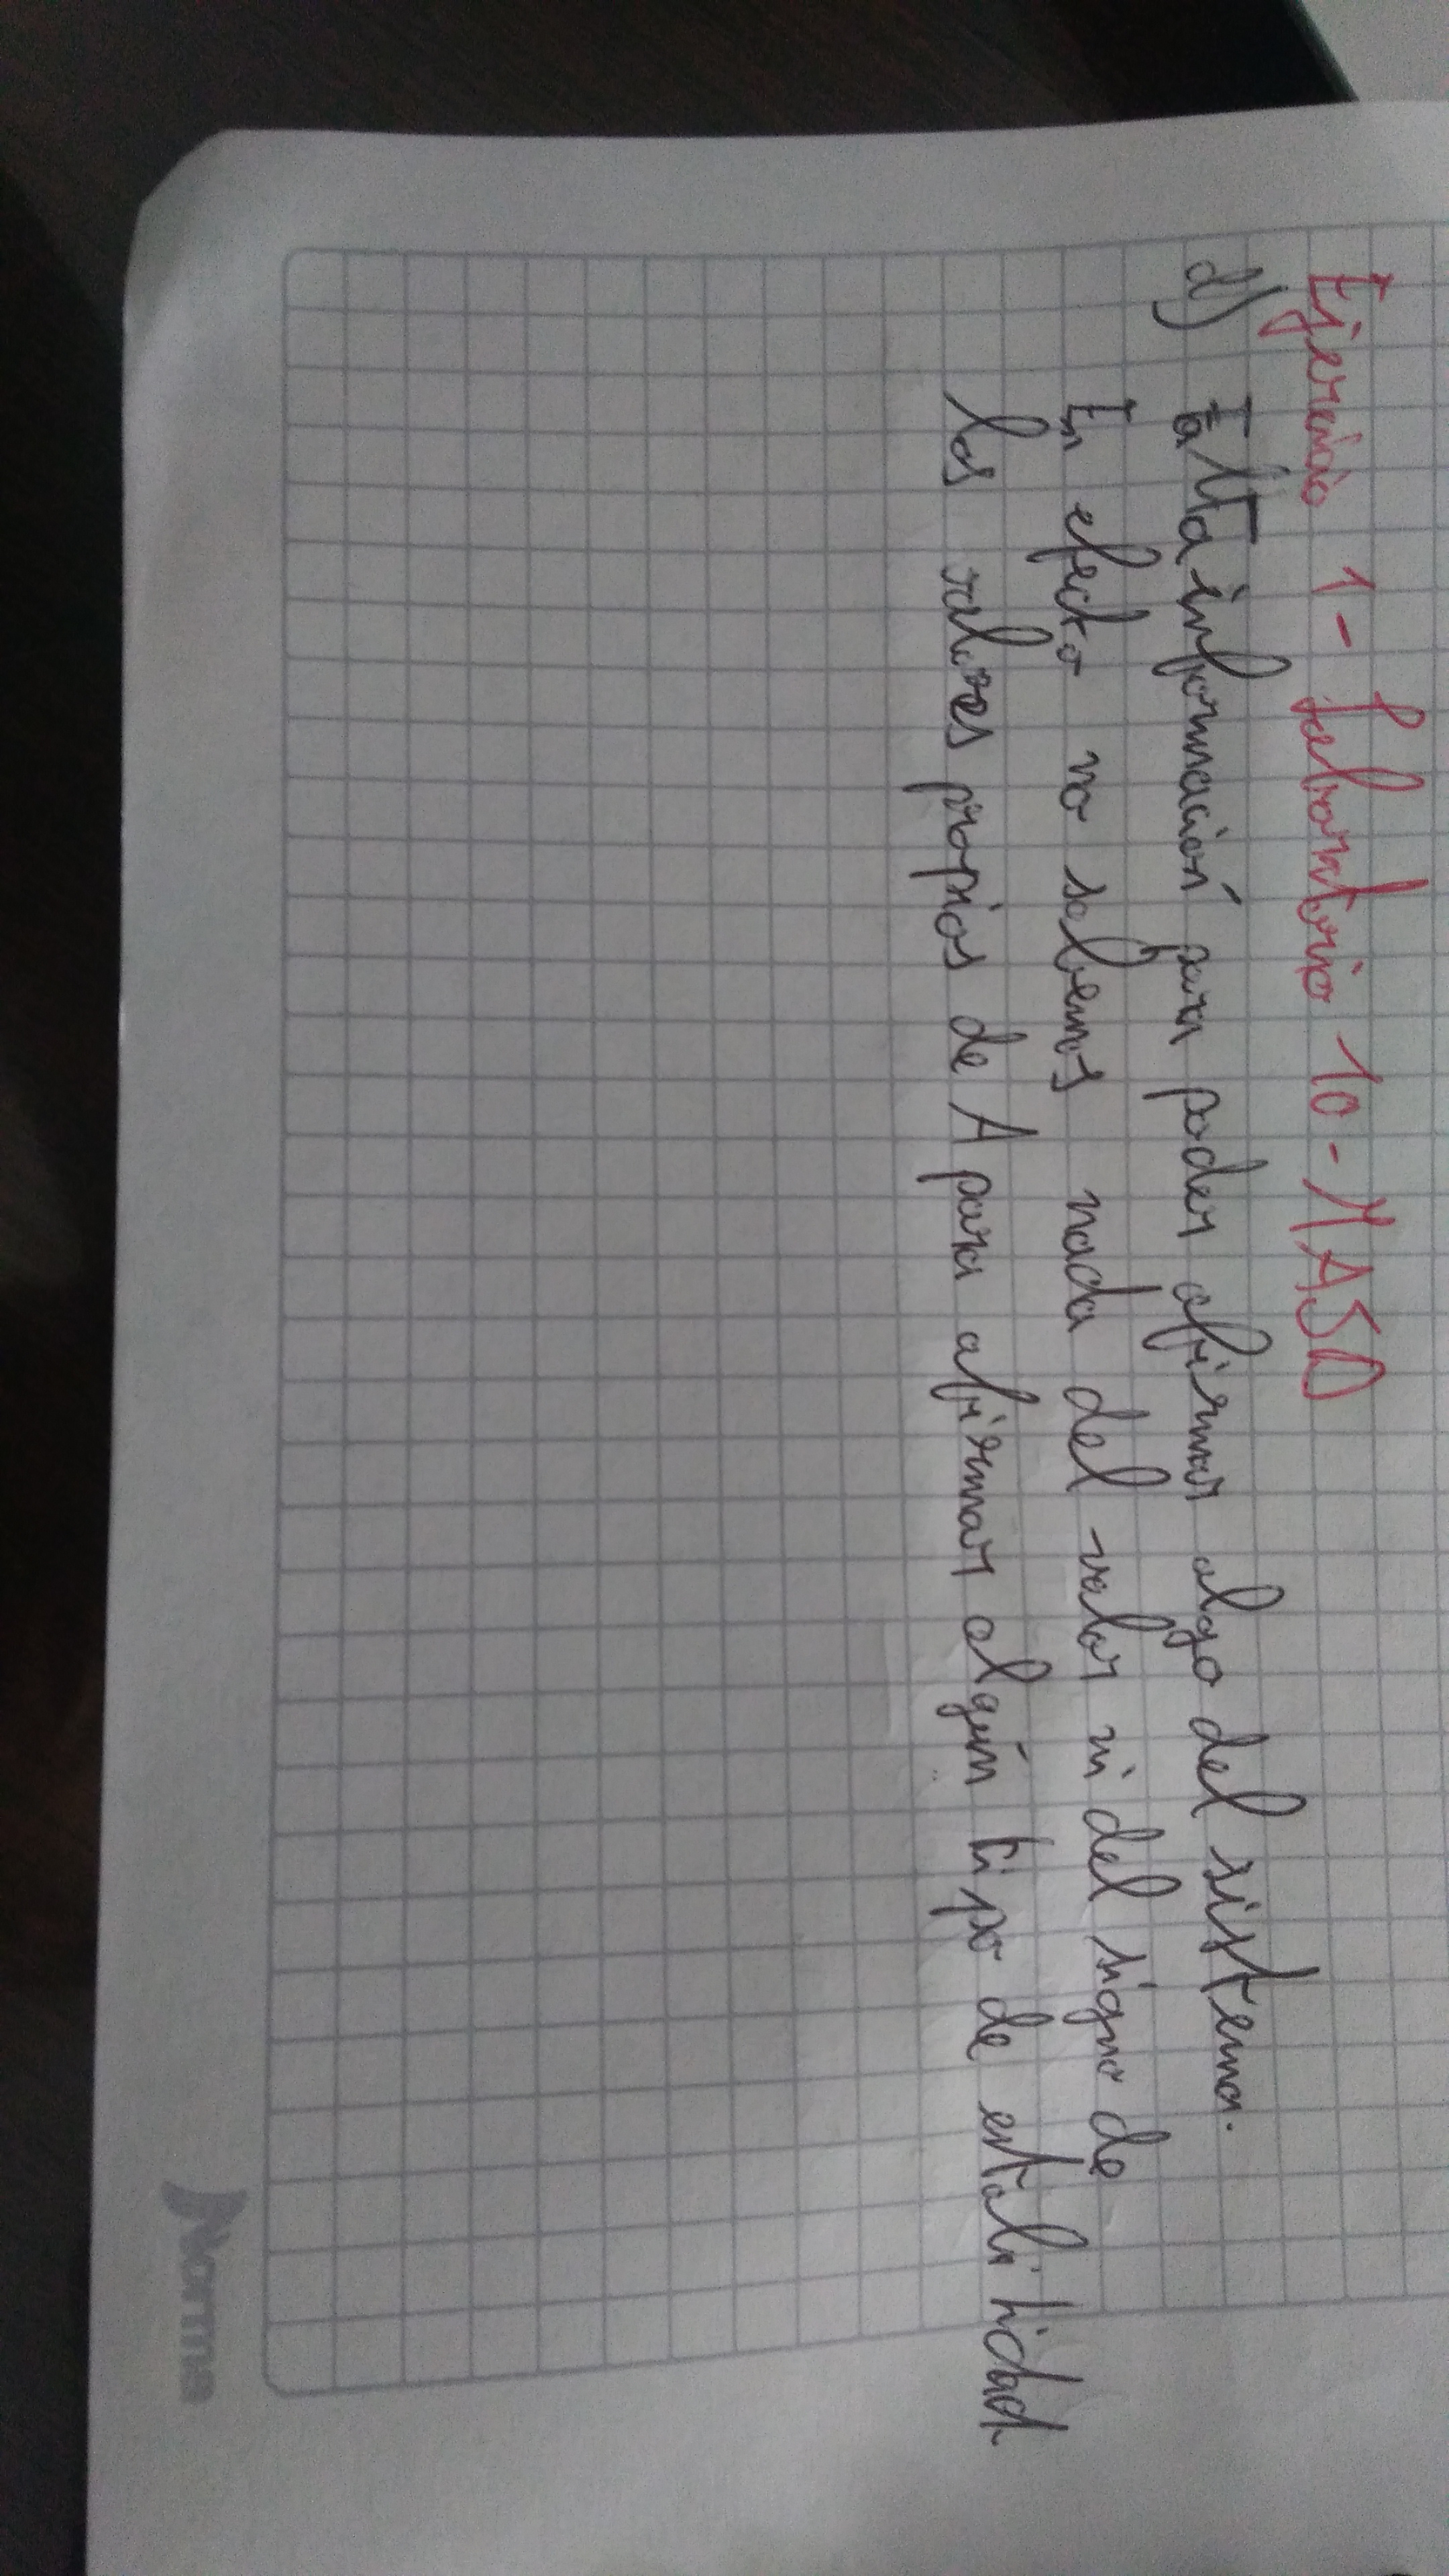 Ejercicio 1 - Laboratorio 10 - MASD
d) Falta información para poder afirmar algo del sistema.
En efecto no sabemos nada del valor ni del signo de
los valores propios de A para afirmar algún tipo de estabilidad
Norma